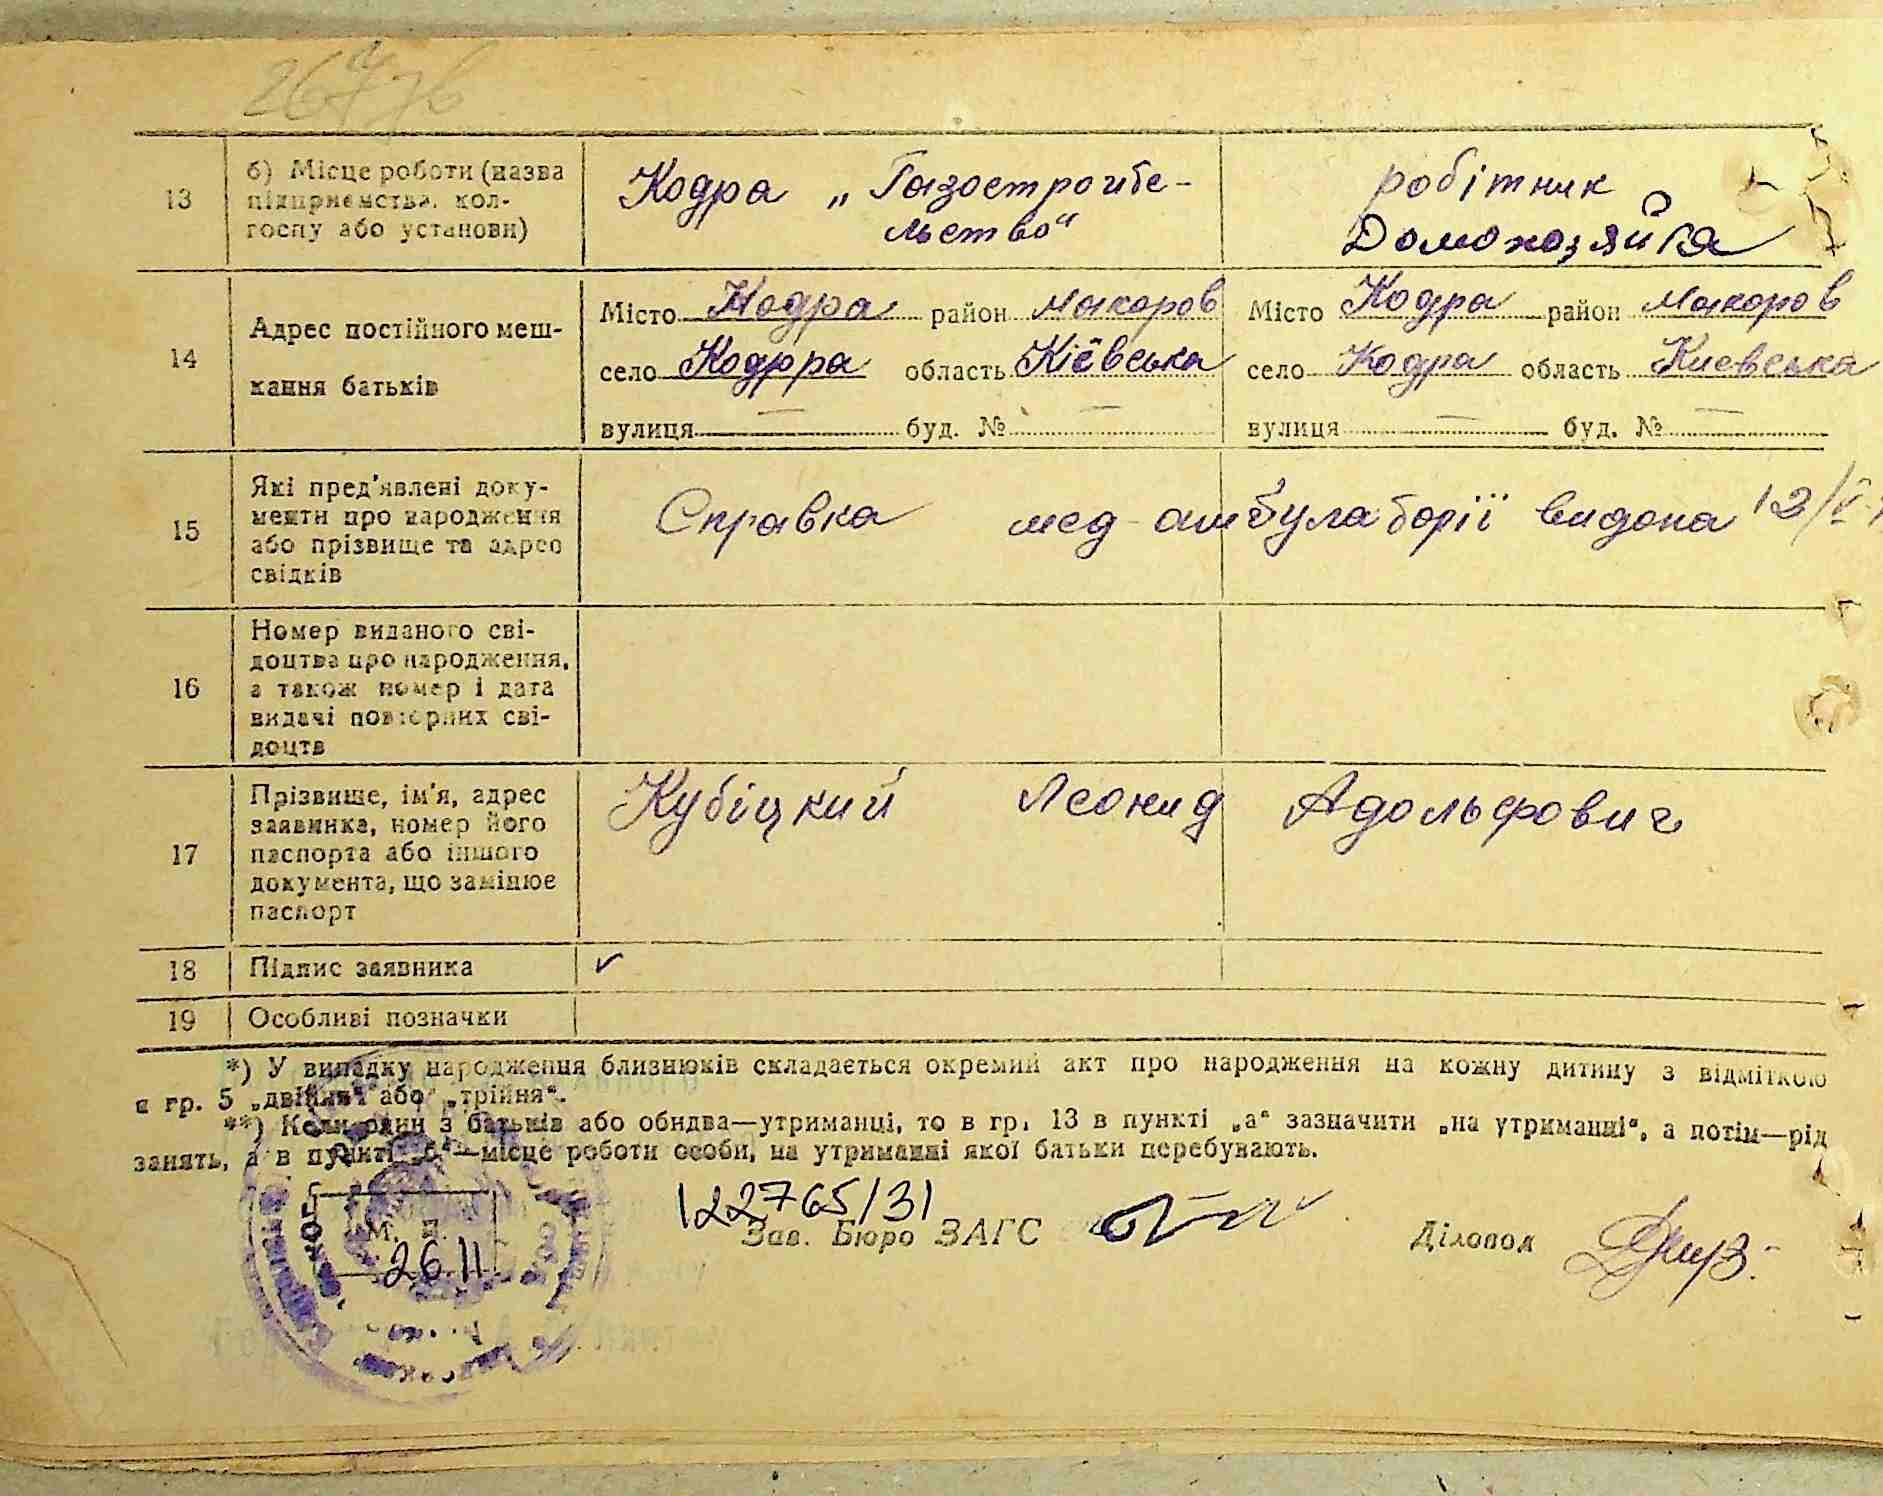 13
б) Місце роботи (назва
підприємства, кол-
госпу або установи)
Кодра „Газостроитє-
льство“
робітник
Домохозяйка
14
Адрес постійного меш-
кання батьків
Місто Кодра район Макаров
село Кодрра область Кієвська
вулиця — буд. № —
Місто Кодра район Макаров
село Кодра область Киевська
вулиця — буд. № —
15
Які пред'явлені доку-
менти про народження
або прізвище та адрес
свідків
Справка мед-амбулаборії видона 12/V
16
Номер виданого сві-
доцтва про народження,
а також номер і дата
видачі повторних сві-
доцтв
17
Прізвище, ім'я, адрес
заявника, номер його
паспорта або іншого
документа, що замінює
паспорт
Кубіцкий Леонид Адольфович
18
Підпис заявника
19
Особливі позначки
*) У випадку народження близнюків складається окремий акт про народження на кожну дитину з відміткою
в гр. 5 „двійня“ або „трійня“.
**) Коли один з батьків або обидва—утриманці, то в гр. 13 в пункті „а“ зазначити „на утриманні“, а потім—рід
занять, а в пункті „б“—місце роботи особи, на утриманні якої батьки перебувають.
М. П.
26 11
122765/31
Зав. Бюро ЗАГС
Діловод